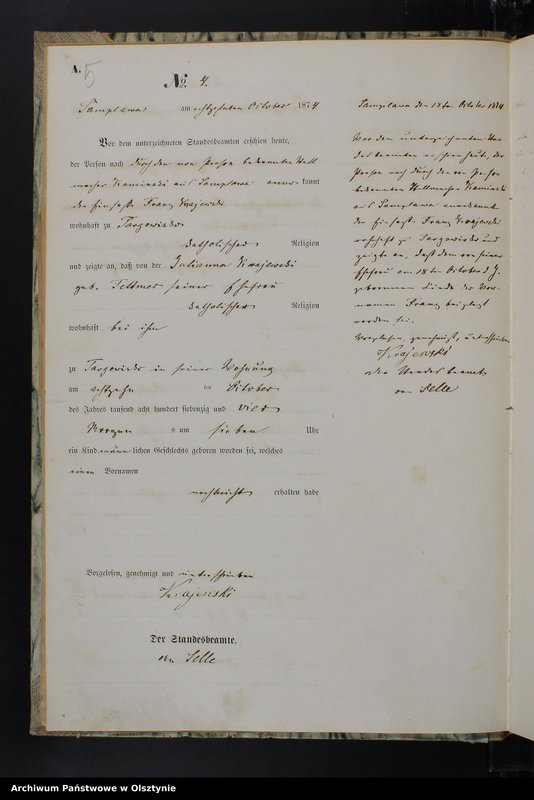 A.
5
No. 4.
Samplawa am achtzehnten October 1874
Vor dem unterzeichneten Standesbeamten erschien heute,
der Person nach durch den von Person bekannten Stell
macher Kaminski aus Samplawa anerkannt
der Einsaß Franz Krajewski
wohnhaft zu Targowisko
katholischer Religion
und zeigte an, daß von der Julianna Krajewski
geb. Tettmer seiner Ehefrau
katholischer Religion
wohnhaft bei ihm
zu Targowisko in seiner Wohnung
am achtzehn ten October
des Jahres tausend acht hundert siebenzig und vier
Morgen s um sieben Uhr
ein Kind männlichen Geschlechts geboren worden sei, welches
einen Vornamen
noch nicht erhalten habe
Vorgelesen, genehmigt und unterschrieben
Krajewski
Der Standesbeamte.
von Selle
Samplawa den 18ten October 1874
Vor dem unterzeichneten Stan-
desbeamten erschien heute, der
Person nach durch den von Person
bekannten Stellmacher Kaminski
aus Samplawa anerkannt
der Einsaß Franz Krajewski
wohnhaft zu Targowisko und
zeigte an, daß dem von seiner
Ehefrau am 18ten October d. J.
geborenen Kinde der Vor-
namen Franz beigelegt
worden sei.
Vorgelesen, genehmigt, unterschrieben
Krajewski
Der Standesbeamte
von Selle
Archiwum Państwowe w Olsztynie